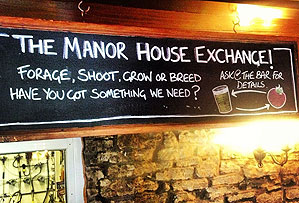 THE MANOR HOUSE EXCHANGE!
FORAGE, SHOOT, GROW OR BREED
HAVE YOU GOT SOMETHING WE NEED?
ASK@THE BAR FOR
DETAILS